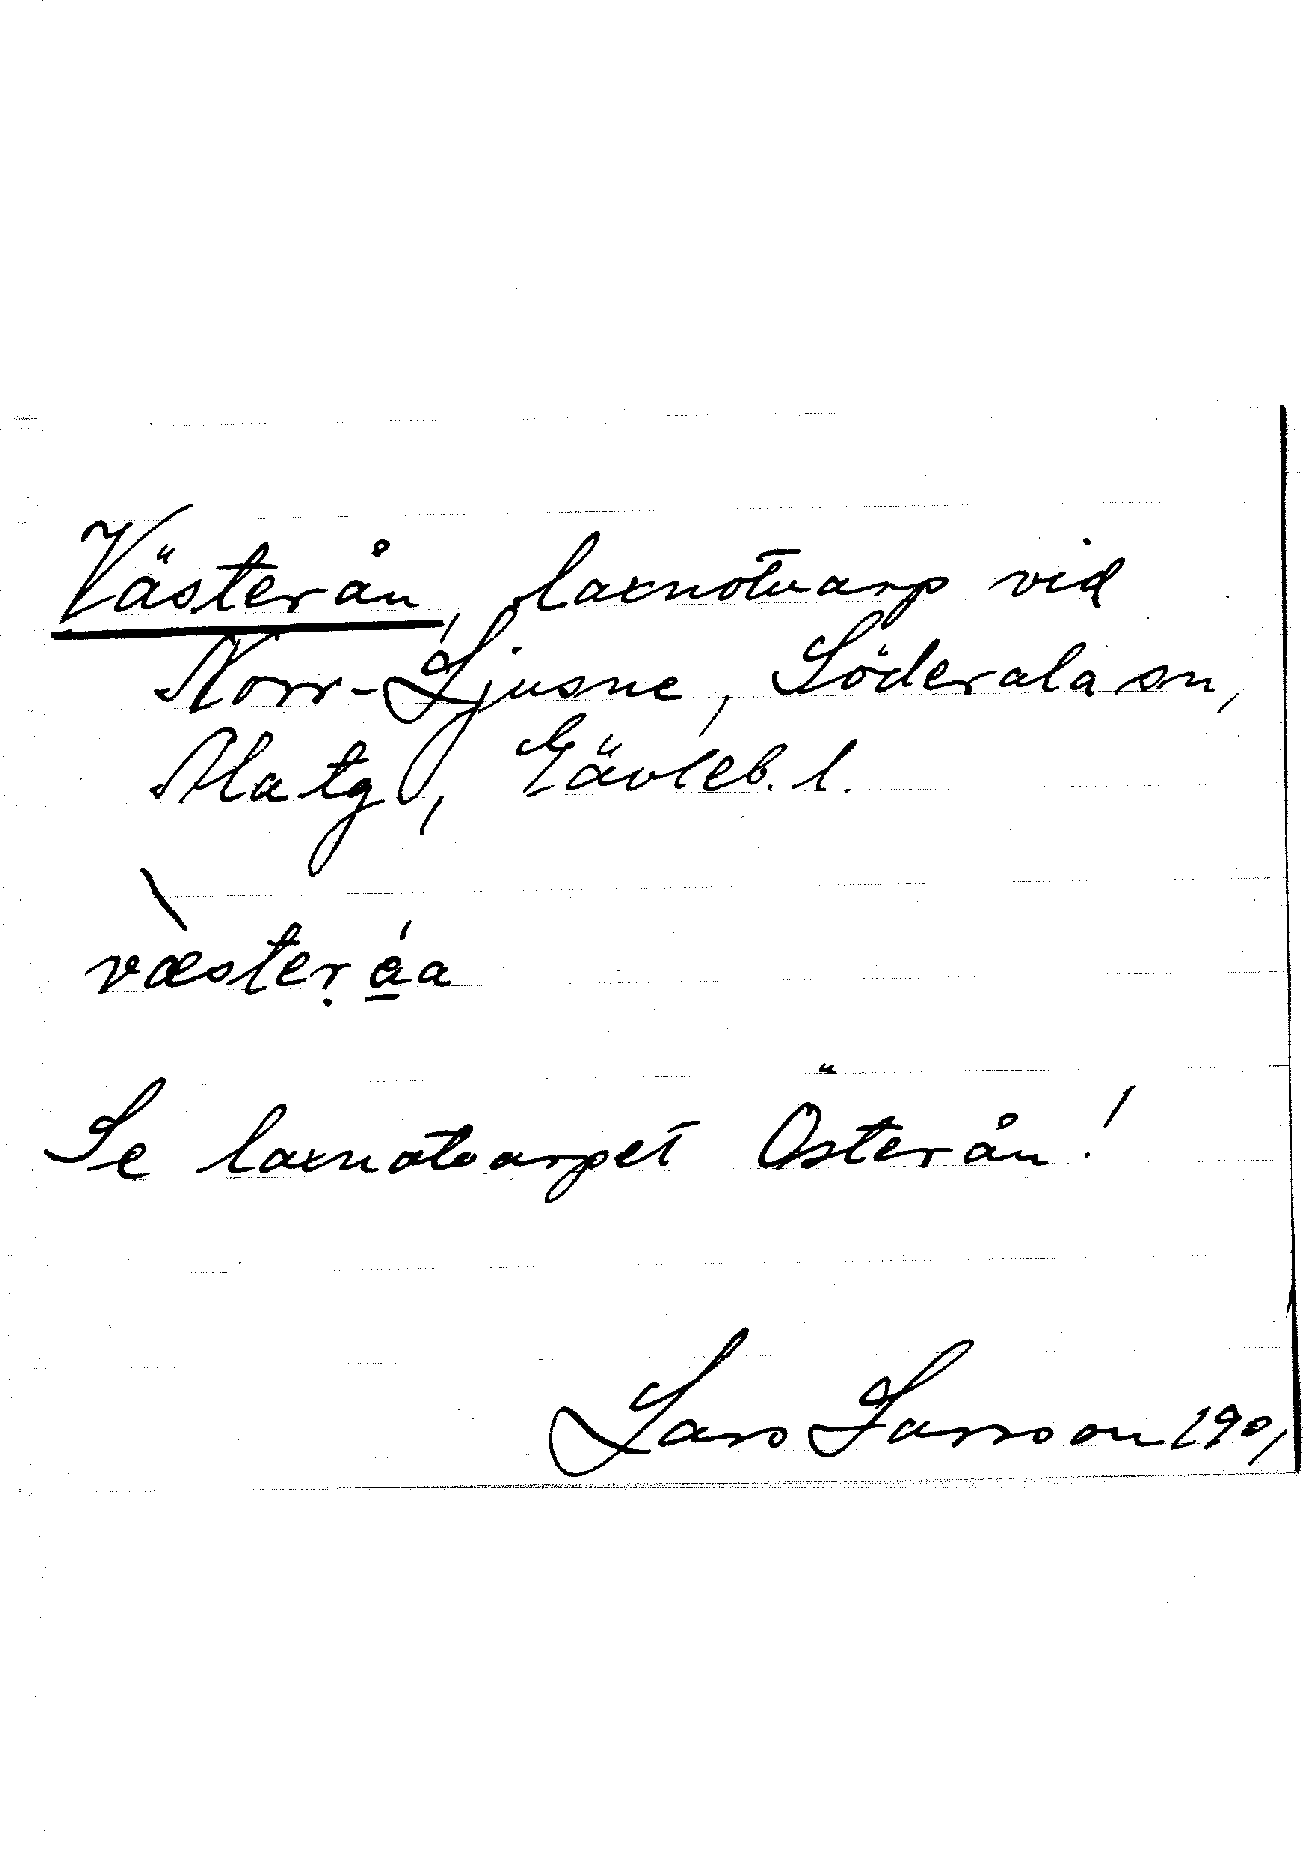 Västerån, laxnotvarp vid
Norr-Ljusne, Söderala sn,
Ala tg, Gävleb. l.
væsteråa
Se laxnotvarpet Österån!
Lars Larsson 1901